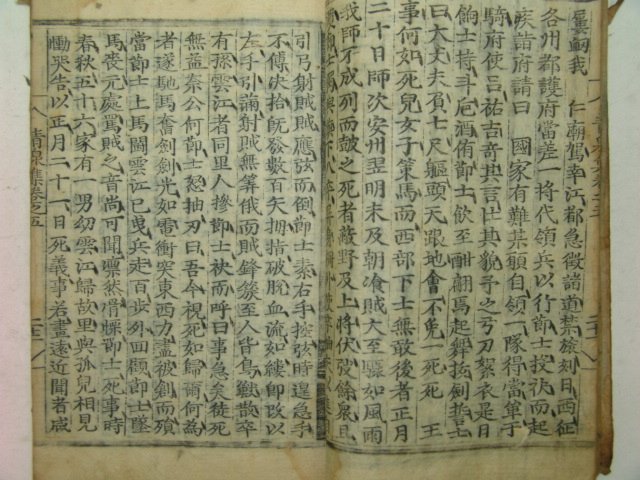 仁廟駕幸江都急徵諸道禁旅刻日西征
各州都護府當差一將代領兵以行節士投袂而起
疾諸府請曰 國家有難某願自領一隊得當軍于
騎府使呂祐吉奇其言壯其貌予之弓刀絮衣是日
餉士持斗巵酒侑節士飮至酣翩馬起舞按劍誓士
曰大丈夫負七尺軀頭天跟地會不免一死死 王
事何如死兒女子策馬而西部下士無敢後者正月
二十日師次安州翌明未及朝飡賊大至驟如風雨
我師不成列而鼓之死者蔽野及上將伏發餘展且
引弓射賊賊應弦而倒節士素右手挍弦時遑急手
不傅決拾旣發數百矢拇指破脫血流如縷卽改以
左手引滿射賊無筭俄而賊鋒簇至人皆鳥獸散卒
有孫雲江者同里人摻節士袂而呼曰事急矣徒死
無益奈公何節士怒抽刃曰吾今視死如歸爾何爲
者遂馳馬奮劍劍光如電衝突東西力盡被創而殞
當節士上馬鬪雲江已曳兵走百步外回顧節士墜
馬喪元處罵賊之音尚可聞凛然滑嗓節士死事時
春秋五十六家有一男幼雲江歸故里與孤兒相見
慟哭告以正月二十一日死義事若畫遠近聞者咸